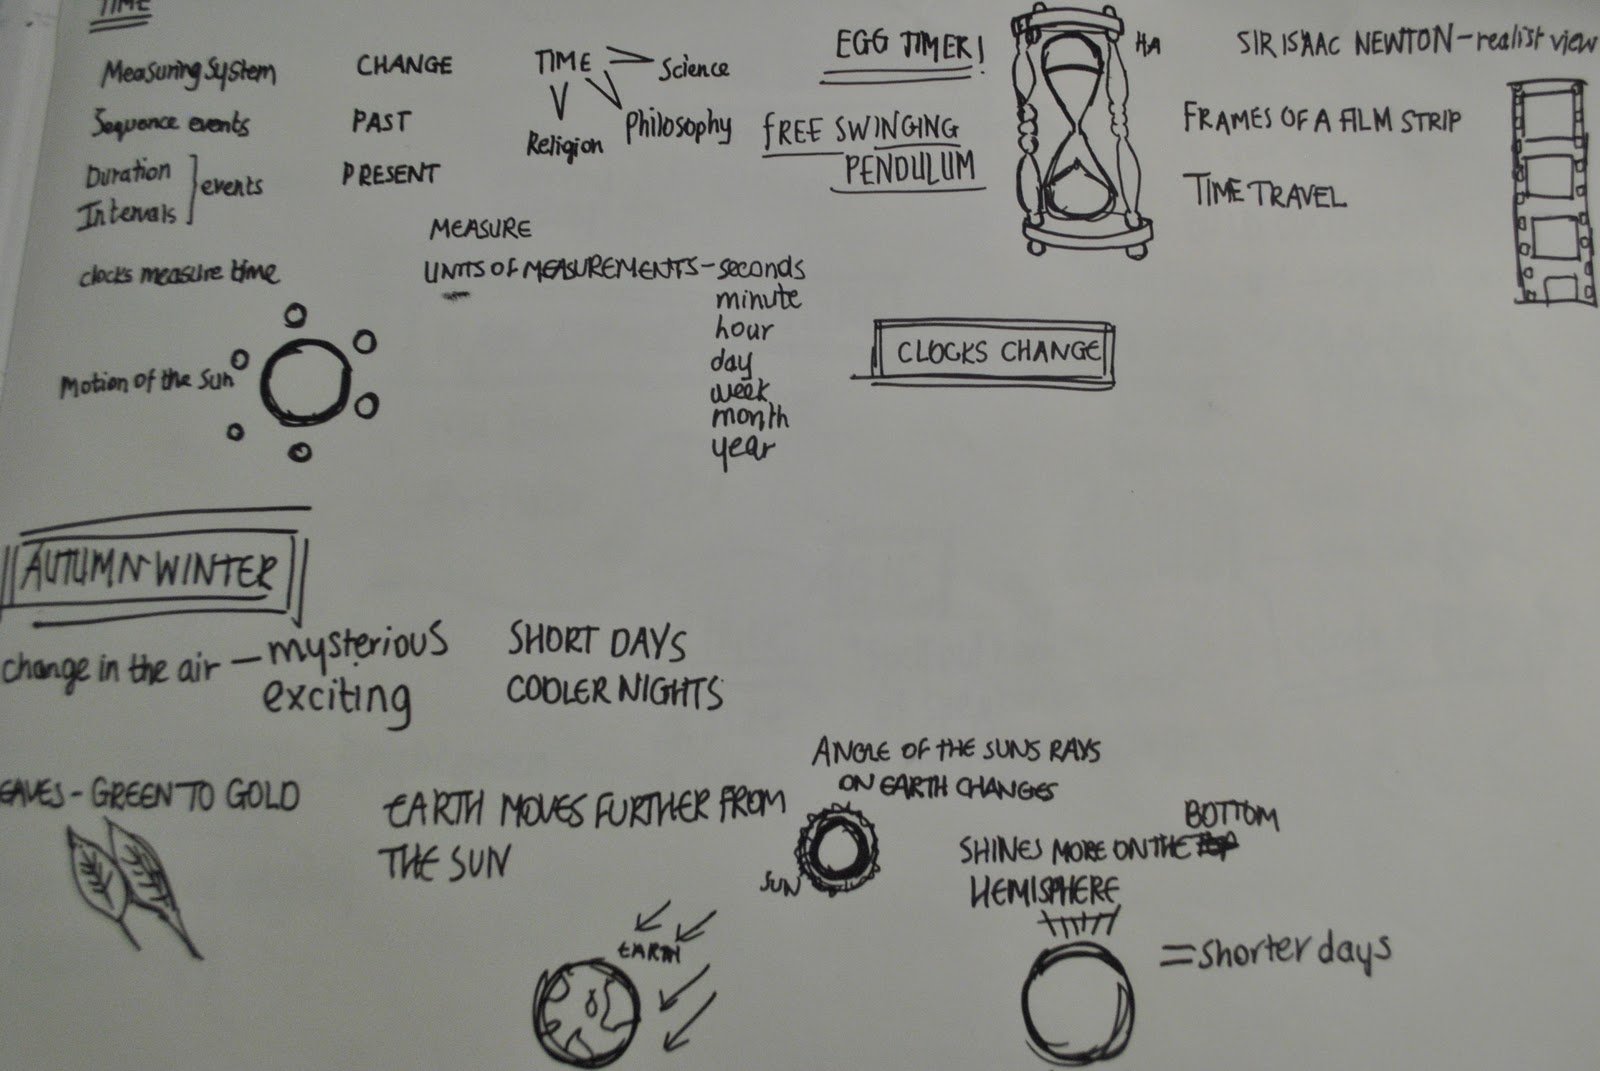 TIME
Measuring System
Sequence events
Duration
Intervals
events
clocks measure time
Motion of the Sun
CHANGE
PAST
PRESENT
TIME
Science
Religion
Philosophy
MEASURE
UNITS OF MEASUREMENTS - seconds
minute
hour
day
week
month
year
EGG TIMER!
FREE SWINGING
PENDULUM
HA
CLOCKS CHANGE
SIR ISAAC NEWTON - realist view
FRAMES OF A FILM STRIP
TIME TRAVEL
AUTUMN-WINTER
change in the air - mysterious
exciting
SHORT DAYS
COOLER NIGHTS
EAVES - GREEN TO GOLD
EARTH MOVES FURTHER FROM
THE SUN
ANGLE OF THE SUNS RAYS
ON EARTH CHANGES
SUN
EARTH
BOTTOM
SHINES MORE ON THE TOP
HEMISPHERE
= shorter days